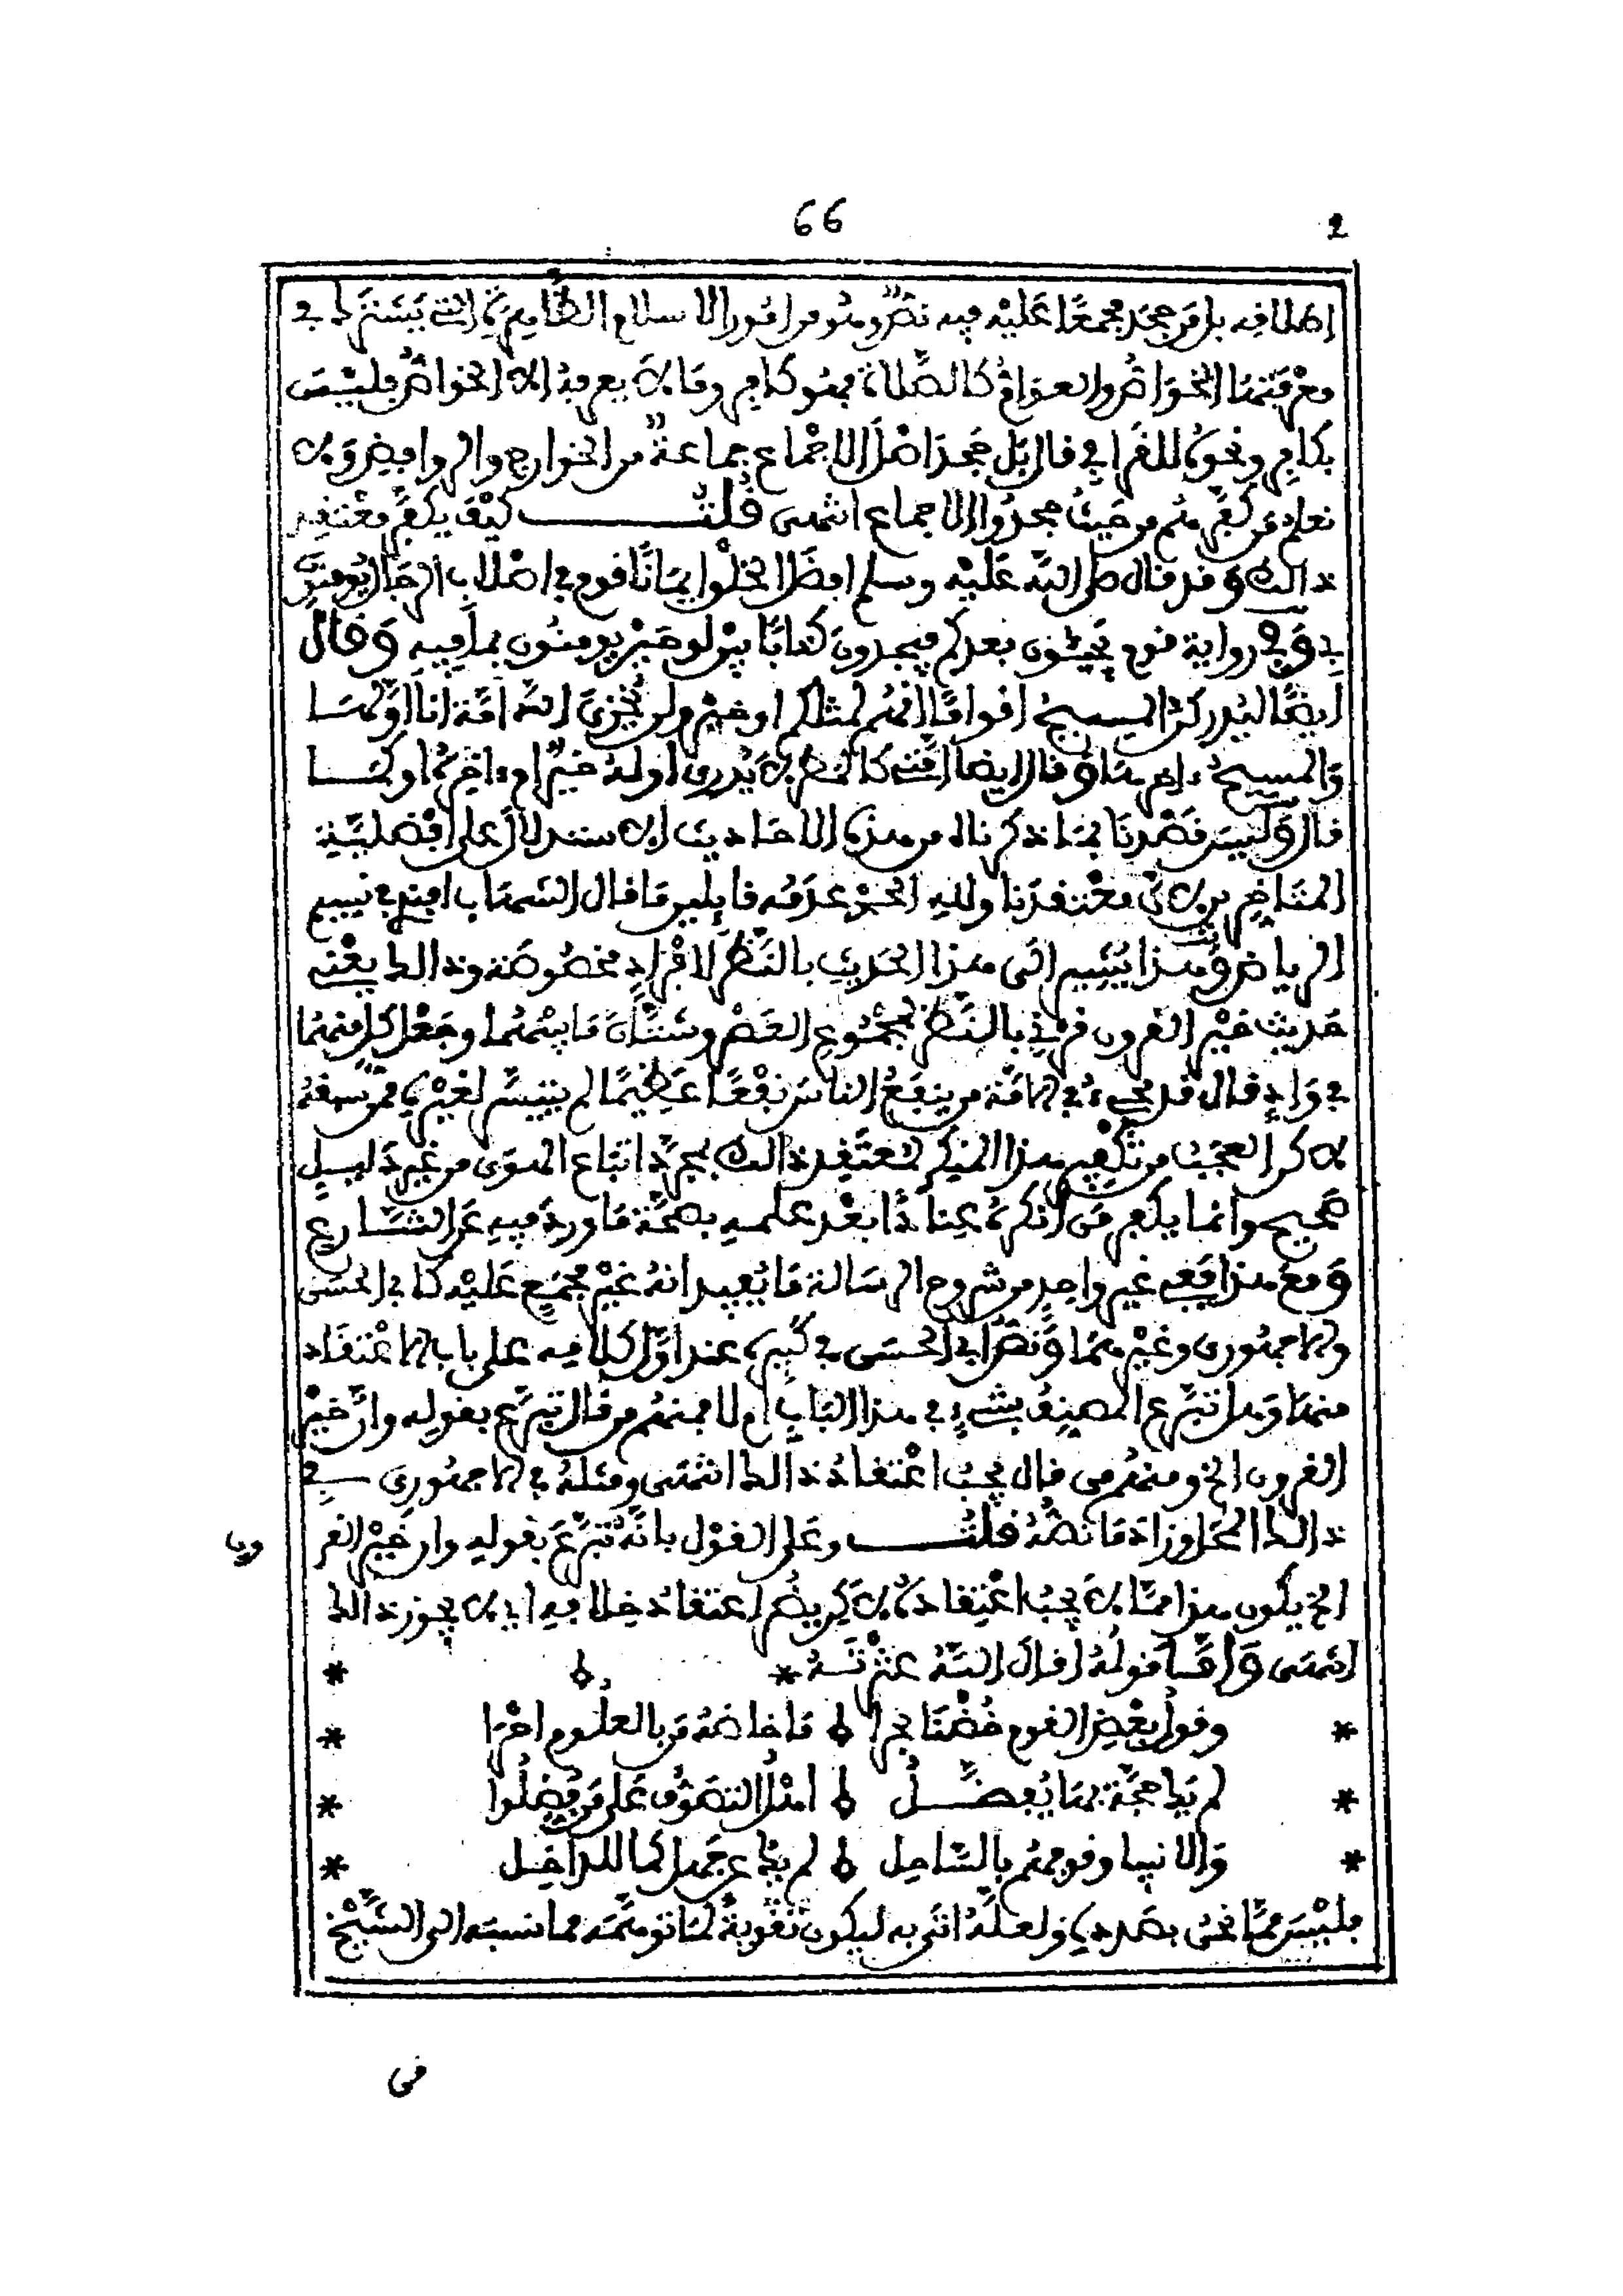 66
2
اطلاقه بل من جحد مجمعا عليه فيه نص وهو من امور الاسلام الظاهرة التي يشترك في
معرفتها الخواص والعوام كالصلاة فهو كافر وما لا يعرفه الا الخواص فليس
بكافر ونحوه للقرافي قال بل جحد اصل الاجماع جماعة من الخوارج والروافض ولا
نعلم من كفرهم من حيث جحدوا الاجماع انتهى قلت كيف يكفر معتقد
ذالك وقد قال صلى الله عليه وسلم افضل الخلق ايمانا قوم في اصلاب الرجال يومنون
بي وفي رواية قوم يجيئون بعدكم فيجدون كتابا بين لوحين يومنون بما فيه وقال
ايضا ليدركن المسيح اقواما انهم لمثلكم او خير ولن يخزي الله امة انا اولها
والمسيح ءاخرها وقال ايضا امتي كالمطر لا يدرى اوله خير ام ءاخره او كما
قال وليس قصدنا بما ذكرناه من هذه الاحاديث الاستدلال على افضلية
المتاخرين لان معتقدنا ولله الحمد عدمه قايلين ما قال الشهاب افندي في نسيم
الرياض وهذا يشير الى هذا الحديث بالنظر لافراد مخصوصة وذالك يعني
حديث خير القرون قرني بالنظر لمجموع العصر وشتان ما بينهما وجعل كل منهما
في واد قال قد يجيء في الامة من ينفع الناس نفعا عظيما لم يتيسر لغيره ممن سبقه
لاكن العجب من تكفير هذا المنكر لمعتقد ذالك بمجرد اتباع الهوى من غير دليل
صحيح وانما يكفر من انكره عنادا بعد علمه بصحة ما ورد فيه عن الشارع
ومع هذا ففي غير واحد من شروح الرسالة ما يفيد انه غير مجمع عليه كابي الحسن
والاجهوري وغيرهما ونص ابي الحسن في كبيره عند اول كلامه على باب الاعتقاد
منها وهل تبرع المصنف بشيء في هذا الباب ام لا فمنهم من قال تبرع بقوله وان خير
القرون الخ ومنهم من قال يجب اعتقاد ذالك انتهى ومثله في الاجهوري في
ذالك المحل وزاد ما نصه قلت وعلى القول بانه تبرع بقوله وان خير القر
ون
الخ يكون هذا مما لا يجب اعتقاده لاكن يضر اعتقاد خلافه اي لا يجوز ذالك
انتهى واما قوله اقال الله عثرته *
* وقول بعض القوم خضنا بحرا ما خاضه من بالعلوم احرى *
* لم يك حجة بها يفضل اهل التصوف على من فضلوا *
* والانبيا وقوفهم بالساحل لم يك عن جهل كما للداخل *
فليس مما نحن بصدده ولعله اتى به ليكون تقوية لما توهمه مما نسبه الى الشيخ
في